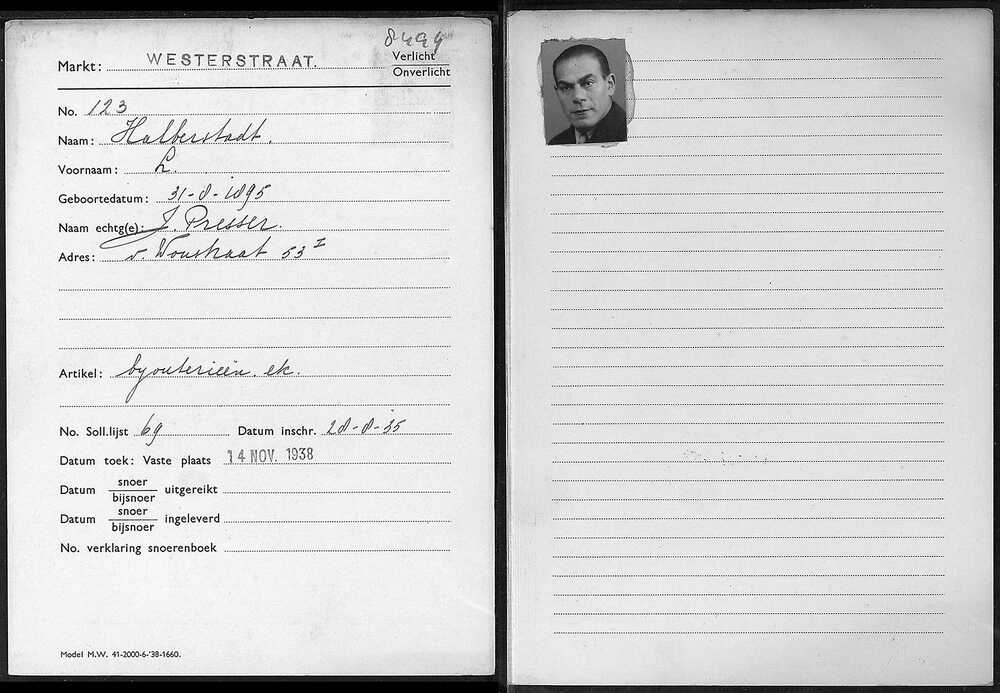 8494
Markt: WESTERSTRAAT.
Verlicht
Onverlicht
No. 123
Naam: Halberstadt.
Voornaam: L.
Geboortedatum: 31-8-1895
Naam echtg(e): J. Presser.
Adres: v. Woustraat 53 I
Artikel: byouterieën. ek.
No. Soll.lijst 69 Datum inschr. 28-8-35
Datum toek: Vaste plaats 14 NOV. 1938
Datum snoer/bijsnoer uitgereikt
Datum snoer/bijsnoer ingeleverd
No. verklaring snoerenboek
Model M.W. 41-2000-6-'38-1660.